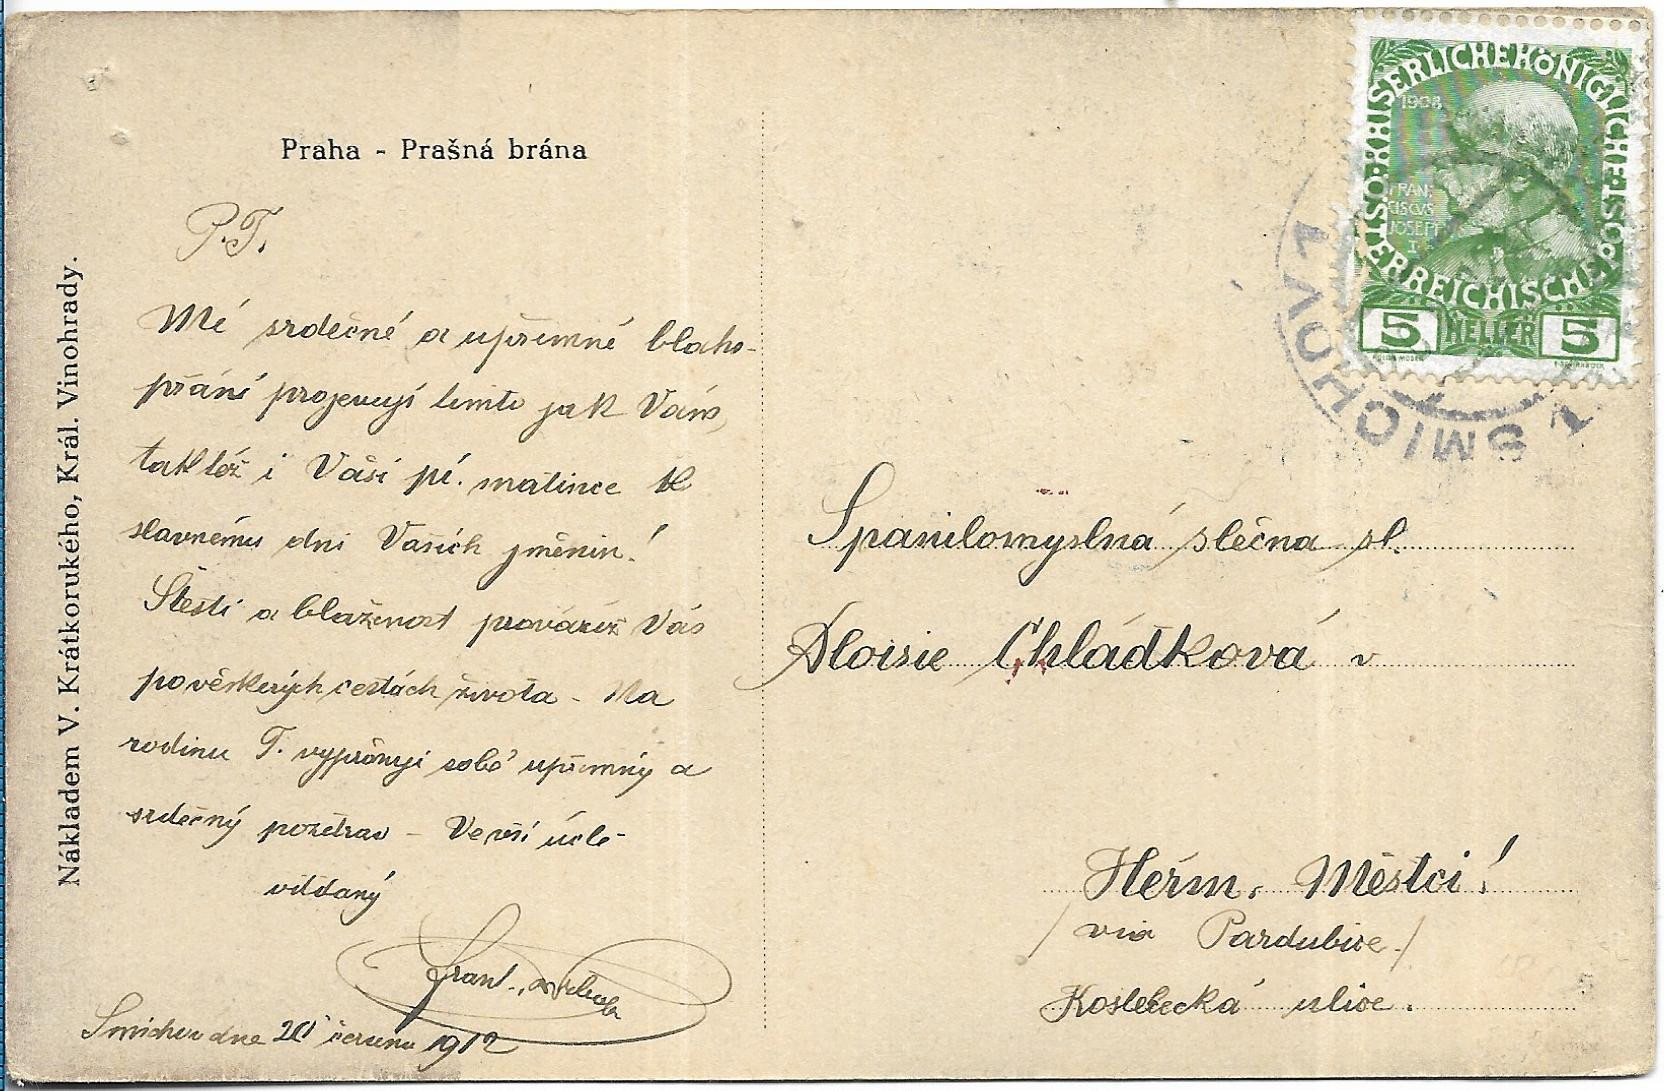 Praha - Prašná brána
Nákladem V. Krátkorukého, Král. Vinohrady.
P.T.
Mé srdečné a upřímné blaho-
přání projevuji tímto jak Vám,
taktéž i Vaší pí. matince k
slavnému dni Vašich jmenin!
Štěstí a blaženost prováziž Vás
po veškerých cestách života - Na
rodinu T. vyprošuji sobě upřímný a
srdečný pozdrav - Ve vší úctě
oddaný
Frant.
Smíchov dne 20 června 1912
KAISERLICHEKÖNIGLICHE
ÖSTERREICHISCHE POST
1908
FRAN
CISCVS
JOSEPH
I
5 HELLER 5
SMICHOV 1
Spanilomyslná slečna sl.
Aloisie Chládková v
Heřm. Městci!
/ via Pardubice /
Kostelecká ulice.